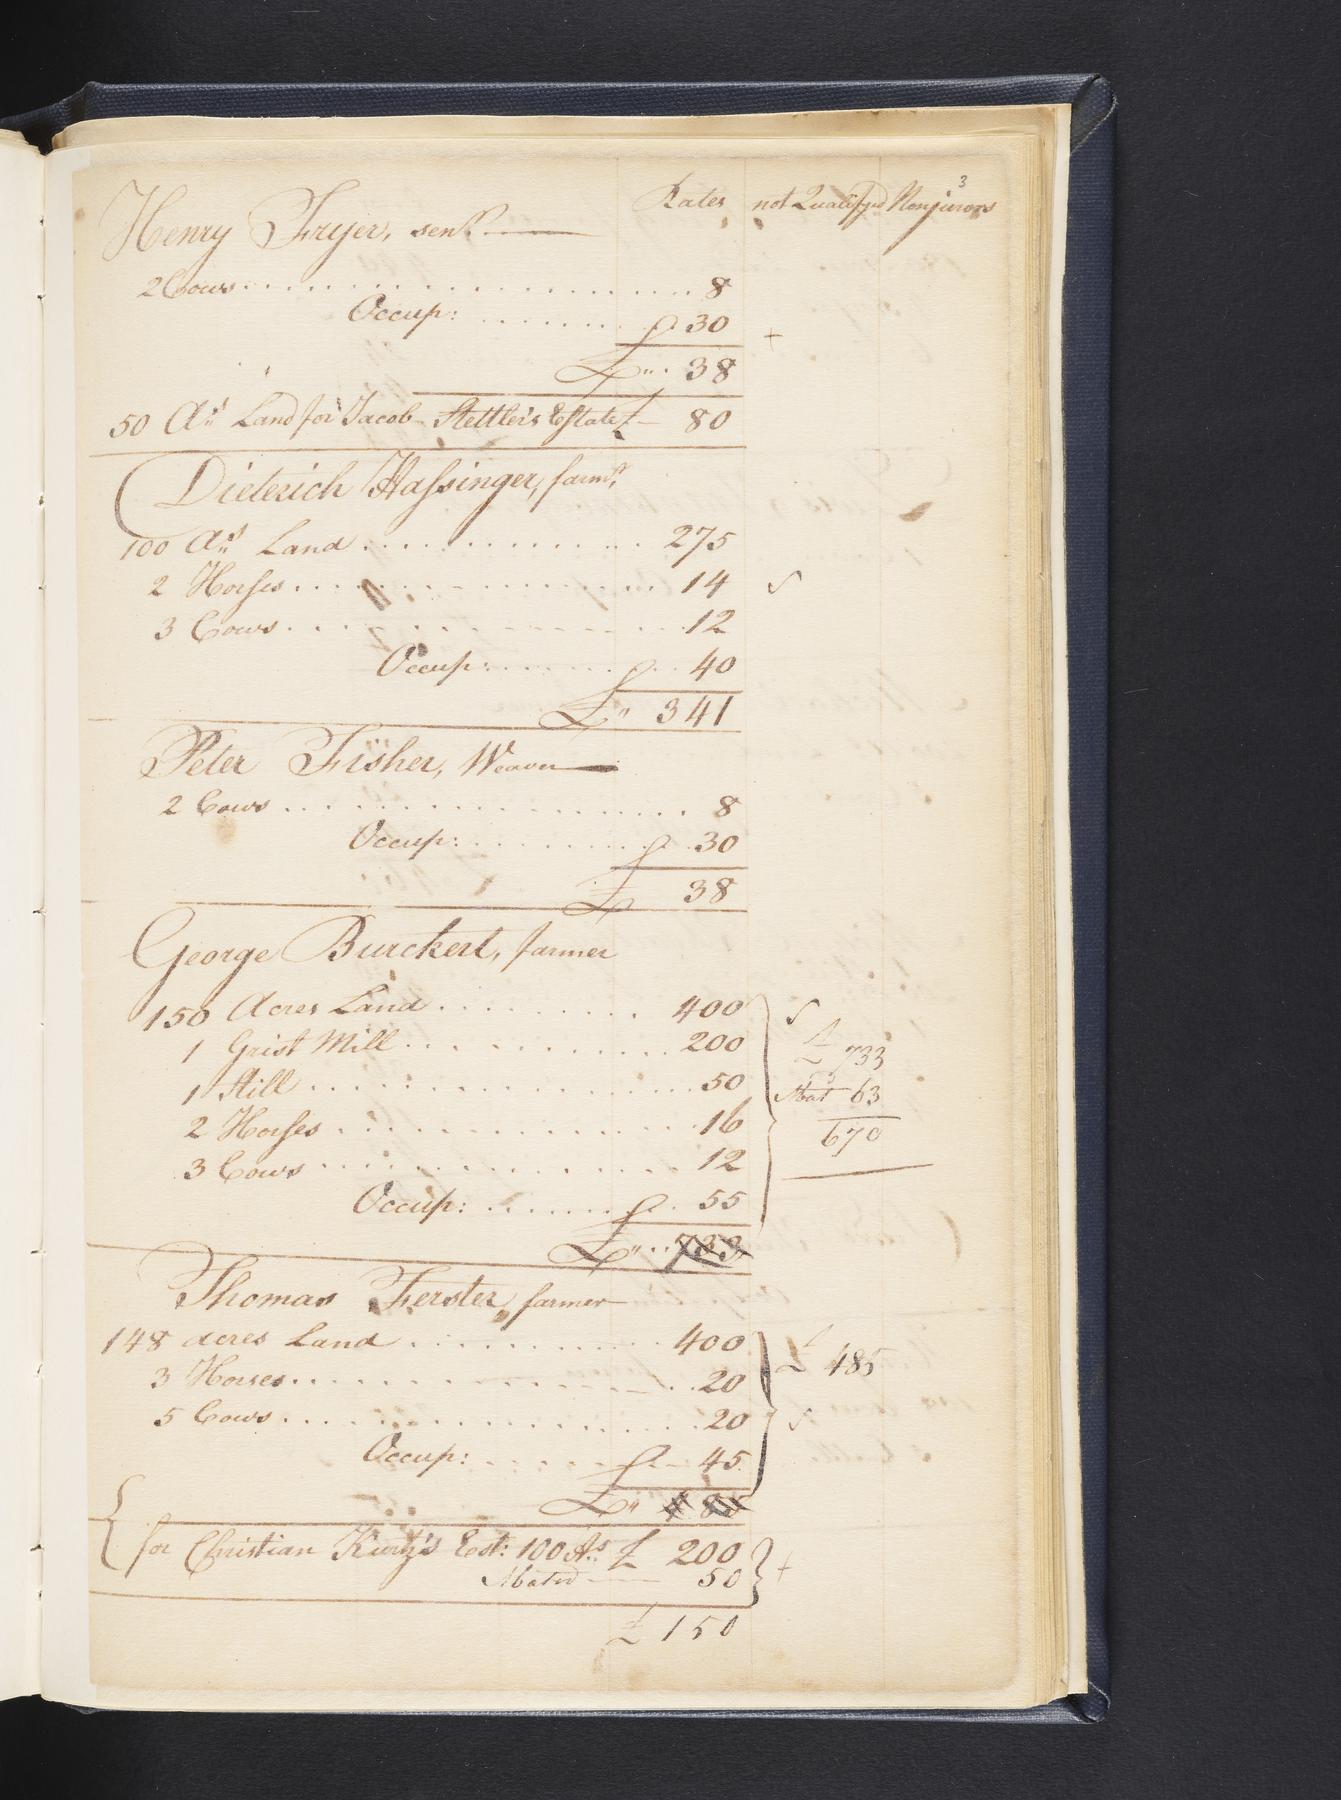 3
Rates not Qualifyd Nonjurors
Henry Fryer, senr.
2 Cows 8
Occup: 30 +
£ 38
50 As. Land for Jacob Stettler's Estate £ 80
Dieterich Hassinger, farmr.
100 As. Land 275
2 Horses 14 S
3 Cows 12
Occup: 40
£ 341
Peter Fisher, Weaver
2 Cows 8
Occup: 30
£ 38
George Burckert, farmer
150 Acres Land 400 S
1 Grist Mill 200 £ 733
1 Still 50 Abat 63
2 Horses 16 670
3 Cows 12
Occup: 55
£ 733
Thomas Ferster, farmer
148 acres Land 400 £ 485
3 Horses 20
5 Cows 20 S
Occup: 45
£ 485
for Christian Kurtz's Est: 100 As. £ 200 +
Abated 50
£ 150